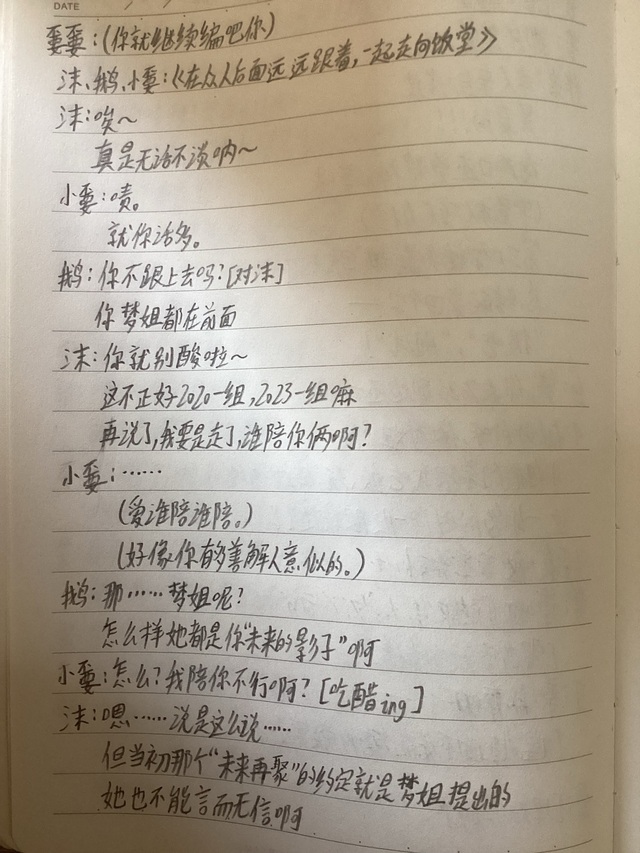 DATE
耍耍：(你就继续编吧你)
沫、鹅、小耍：《在众人后面远远跟着，一起走向饭堂》
沫：唉～
真是无话不谈呐～
小耍：啧。
就你话多。
鹅：你不跟上去吗？[对沫]
你梦姐都在前面
沫：你就别酸啦～
这不正好2020一组，2023一组嘛
再说了，我要是走了，谁陪你俩啊？
小耍：……
(爱谁陪谁陪。)
(好像你有够善解人意似的。)
鹅：那……梦姐呢？
怎么样她都是你“未来的影子”啊
小耍：怎么？我陪你不行啊？[吃醋ing]
沫：嗯……说是这么说……
但当初那个“未来再聚”的约定就是梦姐提出的
她也不能言而无信啊